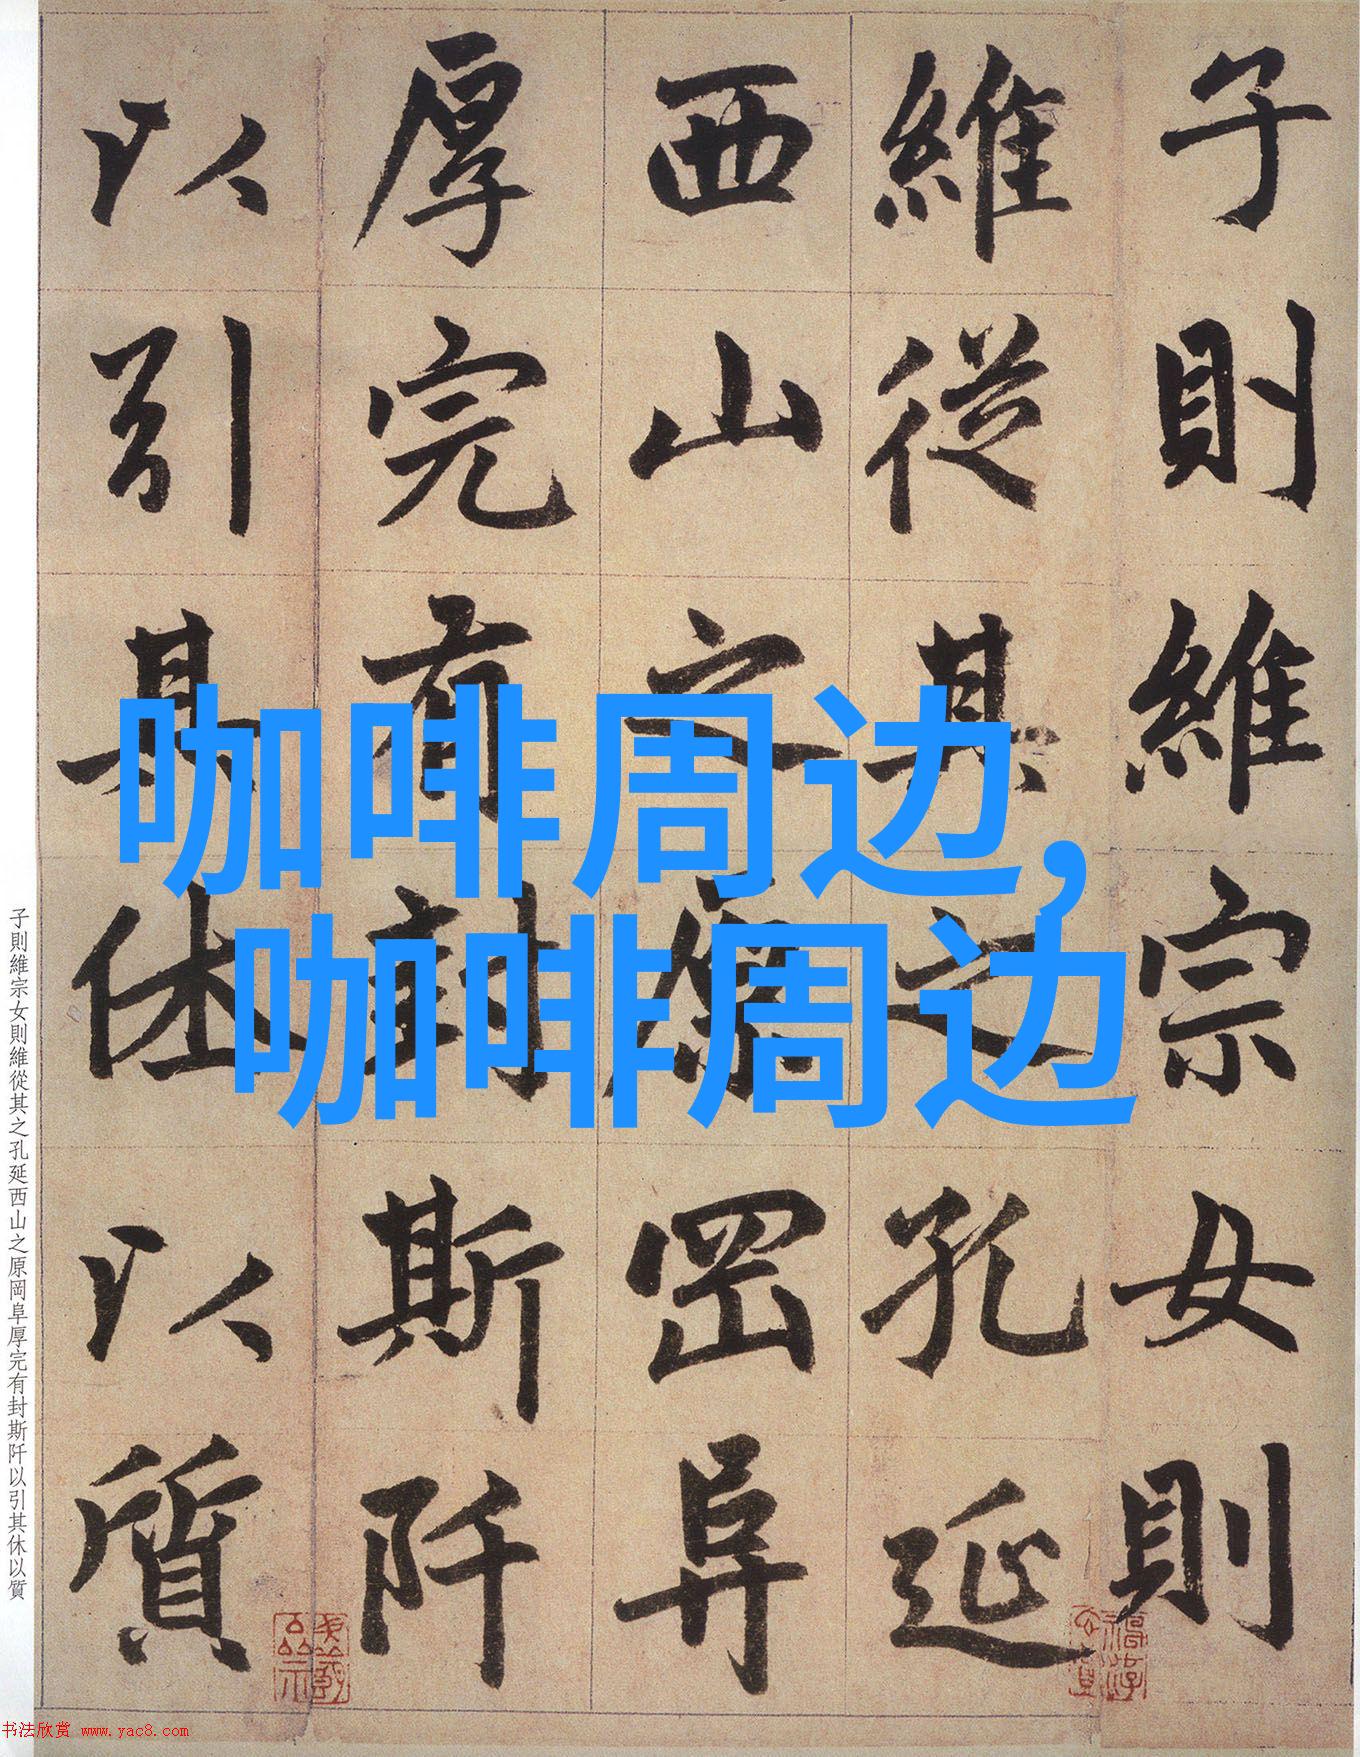 子則維宗女則
維從其之孔延
西山之原岡阜
厚完有封斯阡
以引其休以質
咖啡周边,
咖啡周边
子則維宗女則維從其之孔延西山之原岡阜厚完有封斯阡以引其休以質
书法欣赏 www.yac8.com